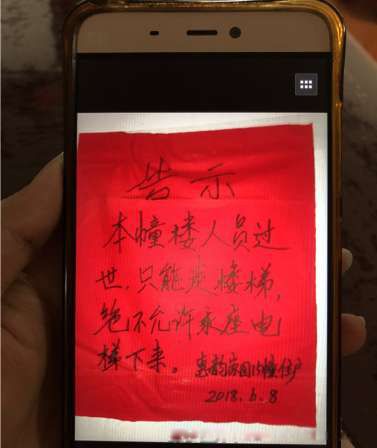 告示
本幢楼人员过
世，只能走楼梯，
绝不允许乘座电
梯下来。惠韵家园15幢住户
2018.6.8